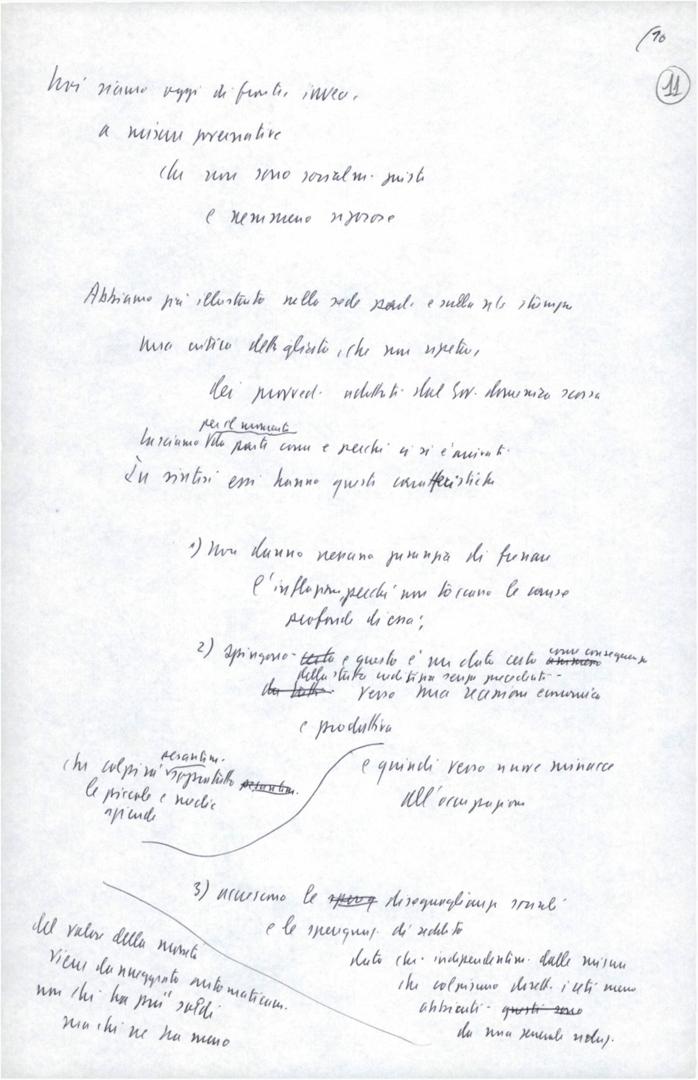 10
11
Noi siamo oggi di fronte, invece,
a misure
che non sono socialm. giuste
e nemmeno rigorose
Abbiamo già illustrato nella sede e sulla stampa
una critica dettagliata, che non ripeto,
dei provved. adottati dal Gov. domenica scorsa
per il momento
lasciamo da parte come e perché ci si è arrivati.
In sintesi essi hanno queste caratteristiche
1) Non danno nessuna garanzia di frenare
l'inflazione, perché non toccano le cause
profonde di essa;
2) Spingono - certo e questo è un dato certo come conseguenza
della stretta creditizia senza precedenti -
verso una recessione economica
e produttiva
che colpirà pesantem. soprattutto pesantem.
le piccole e medie
aziende
e quindi verso nuove minacce
all'occupazione
3) accrescono le disuguaglianze sociali
e le sperequaz. di reddito
dato che - indipendentem. dalle misure
che colpiscono dirett. i ceti meno
abbienti - questi sono
da una generale riduz.
del valore della moneta
viene danneggiato automaticam.
non chi ha più soldi
ma chi ne ha meno